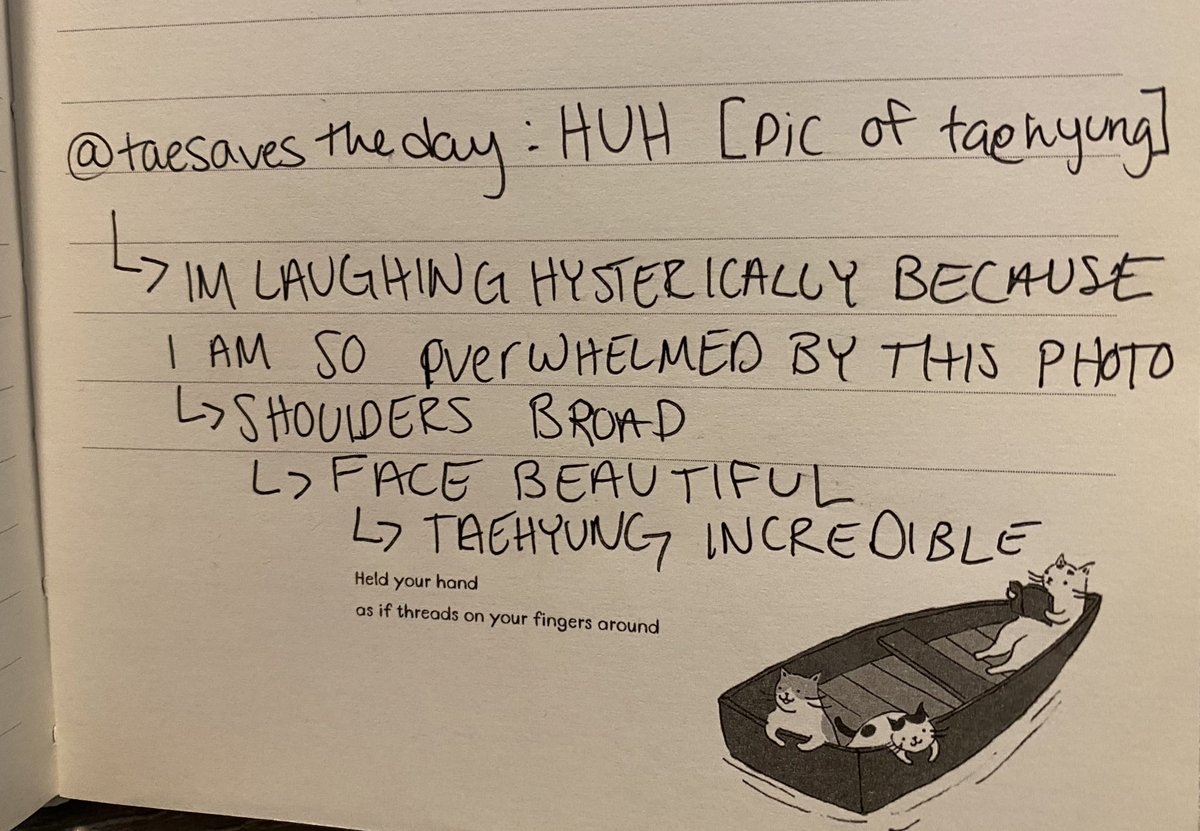 @taesavestheday: HUH [pic of taehyung]
↳ IM LAUGHING HYSTERICALLY BECAUSE
I AM SO OVerWHELMED BY THIS PHOTO
↳ SHOULDERS BROAD
↳ FACE BEAUTIFUL
↳ TAEHYUNG INCREDIBLE
Held your hand
as if threads on your fingers around